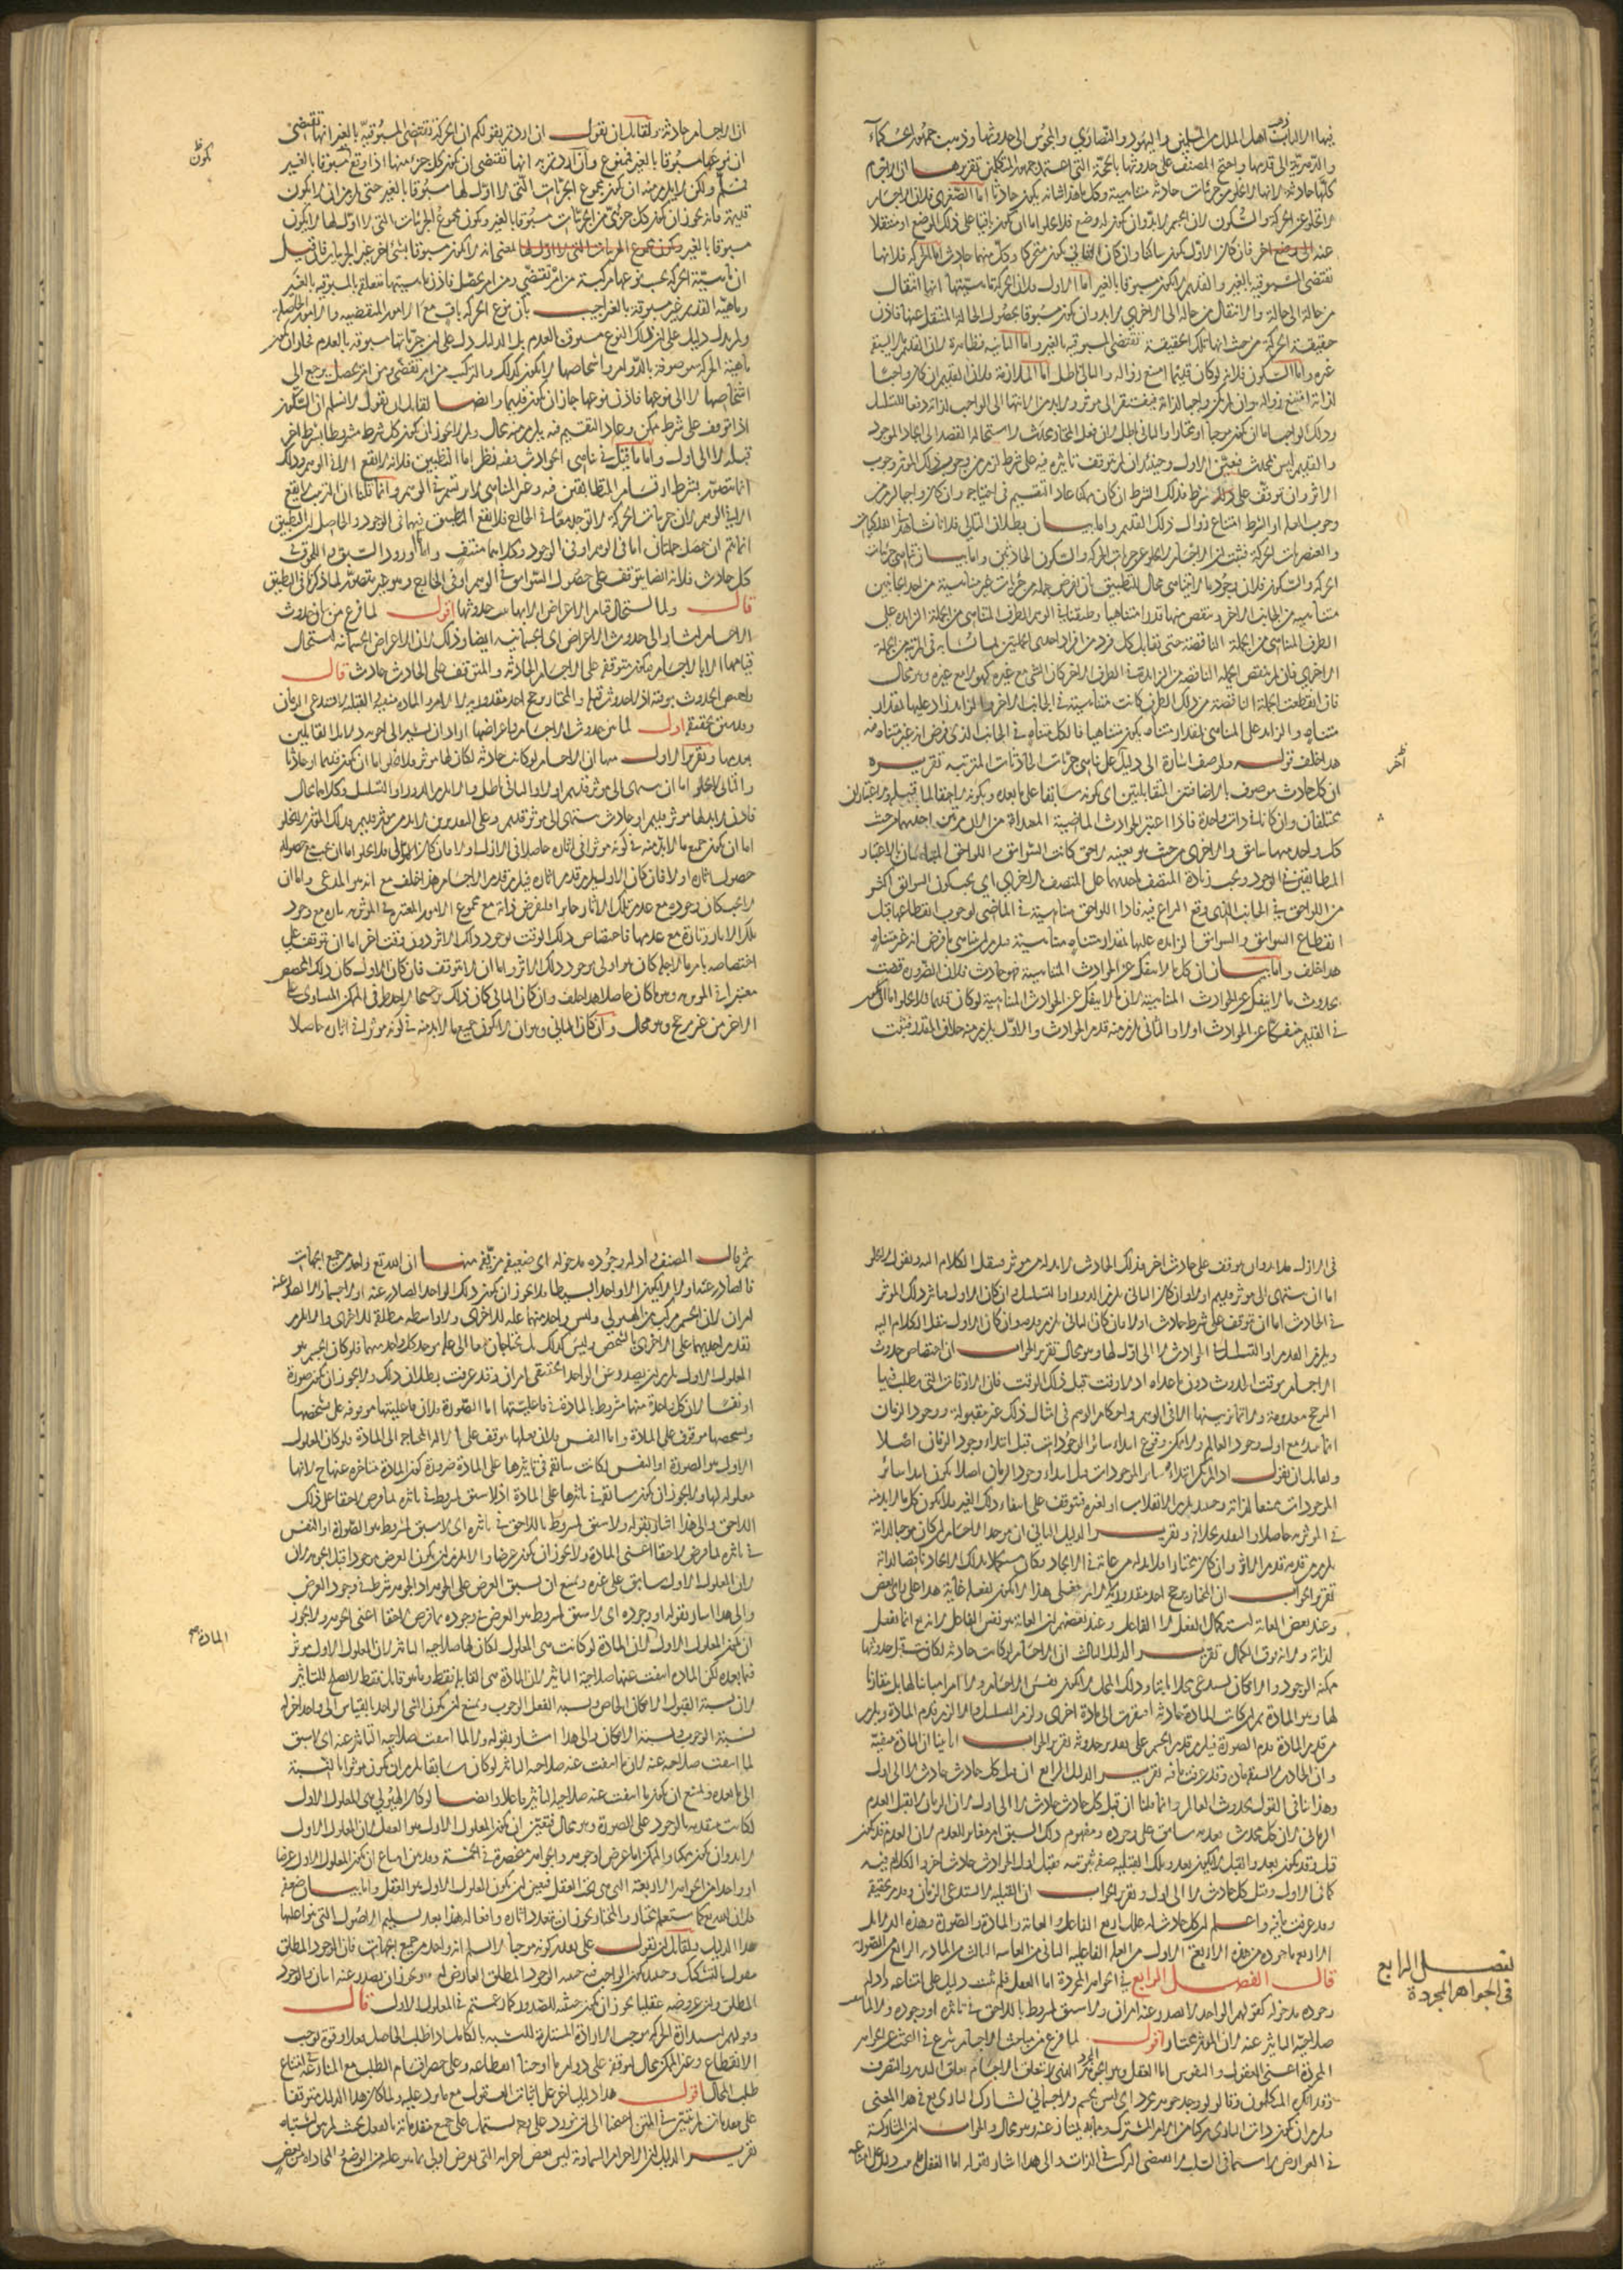 فيها الا اهل الملل من المسلمين واليهود والنصارى والمجوس الى حدوثها وذهب جمهور الحكماء
الى قدمها واحتج المصنف على حدوثها بالحجة التي اعتمد جمهور المتكلمين تقريرها ان الاجسام
كلها حادثة لانها لا تخلو من جزئيات حادثة متناهية وكل ما هذا شانه يكون حادثا اما الصغرى فلان الاجسام
لا تخلو عن الحركة والسكون لان الجسم لا بد وان يكون له وضع فلا يخلو اما ان يكون باقيا على ذلك الوضع او منتقلا
عنه الى وضع اخر فان كان الاول يكون ساكنا وان كان الثاني يكون متحركا وكل منهما حادث اما الحركة فلانها
تقتضي المسبوقية بالغير والقديم لا يكون مسبوقا بالغير اما الاول فلان الحركة ماهيتها انها انتقال
من حالة الى حالة والانتقال من حالة الى الاخرى لا بد وان يكون مسبوقا بحصول الحالة المنتقل عنها فاذن
حقيقة الحركة من حيث انها تلك الحقيقة تقتضي المسبوقية بالغير واما الثانية فظاهرة لان القديم لا يسبقه
غيره واما السكون فلانه لو كان قديما امتنع زواله والتالي باطل اما الملازمة فلان القديم ان كان واجبا
لذاته امتنع زواله وان لم يكن واجبا لذاته فيفتقر الى مؤثر ولا بد من الانتهاء الى الواجب لذاته دفعا للتسلسل
وذلك الواجب اما ان يكون موجبا او مختارا والثاني باطل لان فعل المختار محدث لاستحالة القصد الى ايجاد الموجود
والقديم ليس بمحدث فتعين الاول وحينئذ ان لم يتوقف تاثيره فيه على شرط لزم من وجوب ذلك المؤثر وجوب
الاثر وان توقف على شرط فذلك الشرط ان كان ممكنا عاد التقسيم في احتياجه وان كان واجبا لزم من
وجوب العلة او الشرط امتناع زوال ذلك القديم واما بيان بطلان التالي فلانا نشاهد في الفلكيات
والعنصريات الحركة فثبت ان الاجسام لا تخلو عن جزئيات الحركة والسكون الحادثين واما بيان تناهي جزئيات
الحركة والسكون فلان وجود ما لا يتناهى محال للتطبيق بان نفرض جملة من جزئيات غير متناهية من احد الجانبين
متناهية من الجانب الاخر وننقص منها قدرا متناهيا وطبقنا في الوهم الطرف المتناهي من الجملة الزائدة على
الطرف المتناهي من الجملة الناقصة حتى تقابل كل فرد من افراد احدى الجملتين بما تشابه في المرتبة من الجملة
الاخرى فان لم تنقص الجملة الناقصة عن الزائدة في الطرف الاخر كان الشيء مع غيره كهو لا مع غيره وهو محال
فان انقطعت الجملة الناقصة من ذلك الطرف كانت متناهية في الجانب الاخر والزائد زاد عليها بمقدار
متناه والزائد على المتناهي بمقدار متناه يكون متناهيا فالكل متناه في الجانب الذي فرض انه غير متناه فيه
هذا خلف قوله ولوصف اشارة الى دليل على تناهي جزئيات الحادثات المترتبة تقريره
ان كل حادث موصوف بالاضافتين المتقابلتين اي كونه سابقا على ما بعده وكونه لاحقا لما قبله والاعتباران
مختلفان وان كانا في ذات واحدة فاذا اعتبرنا الحوادث الماضية المبتداة من الان مرتين احديهما من حيث
كل واحد منهما سابق والاخرى من حيث هو بعينه لاحق كانت السوابق واللواحق بالاعتبار
المطابقين في الوجود ويجب زيادة المتصف باحديهما على المتصف بالاخرى اي يجب كون السوابق اكثر
من اللواحق في الجانب الذي وقع النزاع فيه فاذا اللواحق متناهية في الماضي لوجوب انقطاعها قبل
انقطاع السوابق والسوابق الزائدة عليها بمقدار متناه متناهية فيلزم ان يتناهى ما فرض انه غير متناه
هذا خلف واما بيان ان كل ما لا ينفك عن الحوادث المتناهية فهو حادث فلان الضرورة قضت
بحدوث ما لا ينفك عن الحوادث المتناهية لان ما لا ينفك عن الحوادث المتناهية لو كان قديما فلا يخلو اما ان يكون
في القديم منفكا عن الحوادث اولا والثاني يلزم منه قدم الحوادث والاول يلزم منه خلاف المقدر فثبت
آخر
ان الاجسام حادثة ولقائل ان يقول ان اردتم بقولكم ان الحركة تقتضي المسبوقية بالغير انها تقتضي
ان نوعها مسبوقا بالغير فممنوع وان اردتم به انها تقتضي ان يكون كل جزء منها اذا وقع مسبوقا بالغير
فمسلم ولكن لا يلزم منه ان يكون مجموع الجزئيات التي لا اول لها مسبوقا بالغير حتى يلزم ان لا يكون
قديمة فانه يجوز ان يكون كل جزئي من الجزئيات مسبوقا بالغير وكون مجموع الجزئيات التي لا اول لها لا يكون
مسبوقا بالغير وكون مجموع الجزئيات التي لا اول لها بمعنى انه لا يكون مسبوقا بشيء اخر غير الجزئيات فان قيل
ان ماهية الحركة بحسب نوعها مركبة من امر تقتضي ومن امر تحصل فاذن ماهيتها متعلقة بالمسبوقية بالغير
وماهية القديم غير مسبوقة بالغير اجيب بان نوع الحركة باق مع الامور المنقضية والامور الحاصلة
ولم يدل دليل على ان ذلك النوع مسبوق بالعدم بل الدليل دل على ان جزئياتها مسبوقة بالعدم
ماهية الحركة موصوفة بالدوام واشخاصها لا يكون كذلك والتركب من امر تقضي ومن امر تحصل يرجع الى
اشخاصها لا الى نوعها فاذن نوعها جاز ان يكون قديما وايضا لقائل ان يقول لا نسلم ان السكون
اذا توقف على شرط ممكن وعاد التقسيم فيه يلزم منه محال ولم لا يجوز ان يكون كل شرط مشروطا بشرط اخر
قبله لا الى اول واما ما قيل في تناهي الحوادث ففيه نظر اما التطبيق فلانه لا يقع الا في الوهم وذلك
انما يتصور بشرط ارتسام المتطابقين فيه وغير المتناهي لا يرتسم في الوهم وانما قلنا ان التطبيق لا يقع
الا في الوهم لان جزئيات الحركة لا توجد معا في الخارج فلا يقع التطبيق فيها في الوجود والحاصل ان التطبيق
انما يتم ان حصل جملتان اما في الوهم او في الوجود وكلاهما منتف واما ورود السبق واللحوق في
كل حادث فلانه ايضا يتوقف على حصول السوابق في الوهم او في الخارج وهو غير متصور لما ذكرنا في التطبيق
قال ولما استحال قيام الاعراض الا بها ثبت حدوثها اقول لما فرغ من بيان حدوث
الاجسام اشار الى حدوث الاعراض اي الجسمانية ايضا وذلك لان الاعراض الجسمانية يستحيل
قيامها الا بالاجسام فيكون متوقفة على الاجسام الحادثة والمتوقف على الحادث حادث قال
واختص الحدوث بوقته اذ لا حدوث قبله والمختار يرجح احد مقدوريه لا لامر والمادة منفية والقبلية لا تستدعي الزمان
وقد سبق تحقيقه اقول لما بين حدوث الاجسام واعراضها اراد ان يشير الى اجوبة دلائل القائلين
بقدمها وتقرير الاول منها ان الاجسام لو كانت حادثة لكان لها مؤثر فلا يخلو اما ان يكون قديما او حادثا
والثاني لا يخلو اما ان ينتهي الى مؤثر قديم اولا والثاني باطل والا يلزم الدور او التسلسل وكلاهما محال
فاذن لا بد لها مؤثر قديم او حادث ينتهي الى مؤثر قديم وعلى التقديرين لا بد من مؤثر قديم وذلك المؤثر لا يخلو
اما ان يكون جميع ما لا بد منه في كونه مؤثرا في اثاره حاصلا في الازل اولا فان كان الاول فلا يخلو اما ان يجب مع حصوله
حصول اثاره اولا فان كان الاول يلزم قدم اثاره فيلزم قدم الاجسام هذا خلف مع انه هو المدعى واما ان
لا يجب كان وجوده مع عدم تلك الاثار جائزا فلنفرض ذاته مع مجموع الامور المعتبرة في المؤثرية تارة مع وجود
تلك الاثار وتارة مع عدمها فاختصاص ذلك الوقت بوجود ذلك الاثر دون وقت اخر اما ان يتوقف على
اختصاصه بامر ما لاجله كان هو اولى بوجود ذلك الاثر واما ان لا يتوقف فان كان الاول كان ذلك المخصص
معتبرا في المؤثرية وما كان حاصلا هذا خلف وان كان الثاني كان ذلك ترجيحا لاحد طرفي الممكن المساوي على
الاخر من غير مرجح وهو محال وان كان الثاني وهو ان لا يكون جميع ما لا بد منه في كونه مؤثرا في اثاره حاصلا
في الازل فلا بد وان يتوقف على حادث اخر فذلك الحادث لا بد له من مؤثر فينقل الكلام اليه ونقول لا يخلو
اما ان ينتهي الى مؤثر قديم اولا وان كان الثاني يلزم الدور او التسلسل وان كان الاول فتاثير ذلك المؤثر
في الحادث اما ان يتوقف على شرط حادث اولا فان كان الثاني يلزم قدمه وان كان الاول ينقل الكلام اليه
ويلزم القدم او التسلسل في الحوادث لا الى اول لها وهو محال تقرير الجواب ان اختصاص حدوث
الاجسام بوقت الحدوث دون ما عداه اذ لا وقت قبل ذلك الوقت فان الاوقات التي يطلب فيها
المرجح معدومة ولا تمايز بينها الا في الوهم واحكام الوهم في امثال ذلك غير مقبولة ووجود الزمان
انما يبتدئ مع اول وجود العالم ولا يمكن وقوع ابتداء سائر الموجودات قبل ابتداء وجود الزمان اصلا
ولقائل ان يقول اذا لم يمكن ابتداء سائر الموجودات قبل ابتداء وجود الزمان اصلا يكون ابتداء سائر
الموجودات ممتنعا لذاته وحينئذ يلزم الانقلاب او لغيره فتتوقف على انتفاء ذلك الغير فلا يكون كل ما لا بد منه
في المؤثرية حاصلا والمقدر بخلافه وتقرير الدليل الثاني ان موجد الاجسام ان كان موجبا لذاته
يلزم من قدمه قدم الاثر وان كان مختارا فلا بد له من غاية في الايجاد وكان مستكملا بذلك الايجاد ناقصا لذاته
تقرير الجواب ان المختار يرجح احد مقدوريه لا لامر فعلى هذا لا يكون لفعله غاية هذا على راي بعض
وعند بعض الغاية استكمال الفعل لا الفاعل وعند بعضهم ان الغاية هو نفس الفاعل لانه انما يفعل
لذاته ولانه فوق الكمال تقرير الدليل الثالث ان الاجسام لو كانت حادثة لكانت قبل حدوثها
ممكنة الوجود والامكان يستدعي محلا ثابتا وذلك المحل لا يكون نفس الاجسام ولا امرا مباينا لها بل مقارنا
لها وهو المادة ثم لو كانت المادة حادثة افتقرت الى مادة اخرى ولزم التسلسل والا لزم قدم المادة ويلزم
من قدم المادة قدم الصورة فيلزم قدم الجسم على تقدير حدوثه تقرير الجواب انا بينا ان المادة منفية
وان الحادث لا يستدعي مادة وقد عرفت ما فيه تقرير الدليل الرابع ان قبل كل حادث حادث لا الى اول
وهذا ينافي القول بحدوث العالم وانما قلنا ان قبل كل حادث حادث لا الى اول لان الزمان لا يقبل العدم
الزماني لان كل محدث بعدمه سابق على وجوده ومفهوم ذلك السبق امر مغاير للعدم لان العدم قد يكون
قبل وقد يكون بعد والقبل لا يكون بعد وتلك القبلية صفة ثبوتية فقبل اول الحوادث حادث اخر والكلام فيه
كما في الاول وقبل كل حادث لا الى اول وتقرير الجواب ان القبلية لا تستدعي الزمان وقد مر تحقيقه
وقد عرفت ما فيه واعلم ان كل حادث له علل اربع الفاعل والغاية والمادة والصورة وهذه الدلائل
الاربعة ماخوذة من هذه الاربعة الاول من العلة الفاعلية الثاني من الغاية الثالث من المادة الرابع من الصورة
قال الفصل الرابع في الجواهر المجردة اما العقل فلم يثبت دليل على امتناعه وادلة
وجوده مدخولة كقولهم الواحد لا يصدر عنه امران ولا سبق لمشروط باللاحق في تاثيره او وجوده ولا لما انتفت
صلاحية التاثير عنه لان المؤثر مختار اقول لما فرغ من مباحث الاجسام شرع في البحث عن الجواهر
المجردة اعني العقول والنفوس اما العقل وهو الجوهر المجرد الذي لا يتعلق بالاجسام تعلق التدبير والتصرف
فقد انكره المتكلمون وقالوا لو وجد جوهر مجرد اي ليس بجسم ولا جسماني لشارك الباري تع في هذا المعنى
ويلزم ان يكون ذات الباري مركبا من امر المشترك وما به يمتاز عنه وهو محال والجواب ان المشاركة
في العوارض لا سيما في السلب لا يقتضي التركب في الذات والى هذا اشار بقوله اما العقل فلم يثبت دليل على امتناعه
الفصل الرابع
في الجواهر المجردة
ثم قال المصنف وادلة وجوده مدخولة اي ضعيفة مزيفة منها ان الله تع واحد من جميع الجهات
فالصادر عنه اولا لا يكون الا واحدا بسيطا ولا يجوز ان يكون ذلك الواحد الصادر عنه اولا جسما والا لصدر عنه
امران لان الجسم مركب من الهيولى وليس واحد منهما علة للاخرى ولا واسطة مطلقة للاخرى والا يلزم
تقدم احديهما على الاخرى بالتشخص وليس كذلك بل يحتاجان معا الى علة موجد كل واحد منهما فلو كان الجسم هو
المعلول الاول يلزم ان يصدر عن الواحد الحقيقي امران وقد عرفت بطلان ذلك ولا يجوز ان يكون صورة
او نفسا لان كل واحدة منهما مشروط بالمادة في فاعليتها اما الصورة فلان فاعليتها موقوفة على تشخصها
وتشخصها موقوف على المادة واما النفس فلان فعلها يتوقف على الالة المحتاجة الى المادة ولو كان المعلول
الاول هو الصورة او النفس لكانت سابقة في تاثيرها على المادة ضرورة كون المادة متاخرة عنها ح لانها
معلولة لها ولا يجوز ان يكون سابقة في تاثيرها على المادة اذ لا سبق لمشروط في تاثيره لما فرض لاحقا على ذلك
اللاحق والى هذا اشار بقوله ولا سبق لمشروط باللاحق في تاثيره اي لا سبق لمشروط هو الصورة او النفس
في تاثيره لما فرض لاحقا اعني المادة ولا يجوز ان يكون عرضا والا يلزم ان يكون العرض موجودا قبل الجوهر لان
المعلول الاول سابق على غيره ويمتنع ان يسبق العرض على الجوهر اذ الجوهر شرط في وجود العرض
والى هذا اشار بقوله او وجوده اي لا سبق لمشروط هو العرض في وجوده بما فرض لاحقا اعني الجوهر ولا يجوز
ان يكون المعلول الاول لان المادة لو كانت هي المعلول لكان لها صلاحية التاثير لان المعلول الاول مؤثر
فيما بعده لكن المادة انتفت عنها صلاحية التاثير لان المادة هي القابلة فقط وما هو قابل فقط لا يصلح للتاثير
لان نسبة القبول الامكان الخاص ونسبة الفعل الوجوب ويمتنع ان يكون الشيء الواحد بالقياس الى واحد اخر له
نسبة الوجوب ونسبة الامكان والى هذا اشار بقوله ولا لما انتفت صلاحية التاثير عنه اي لا سبق
لما انتفت صلاحيته عنه لان ما انتفت عنه صلاحية التاثير لو كان سابقا يلزم ان يكون مؤثرا بالنسبة
الى ما بعده ويمتنع ان يكون ما انتفت عنه صلاحية التاثير فاعلا وايضا لو كان الهيولى هي المعلول الاول
لكانت متقدمة بالوجود على الصورة وهو محال فتعين ان يكون المعلول الاول هو العقل لان المعلول الاول
لا بد وان يكون ممكنا والممكن اما عرض او جوهر والجواهر منحصرة في الخمسة وقد بين امتناع ان يكون المعلول الاول عرضا
او واحدا من الجواهر الاربعة التي هي غير العقل فتعين ان يكون المعلول الاول هو العقل واما بيان ضعفه
فلان الله تع كما ستعلم مختار والمختار يجوز ان يتعدد اثاره وافعاله هذا بعد تسليم الاصول التي بنوا عليها
هذا الدليل ولقائل ان يقول على تقدير كونه موجبا لا نسلم انه واحد من جميع الجهات فان الوجود المطلق
مقول بالتشكيك وحينئذ يكون الواجب فيه حيثية الوجود المطلق العارض له ويجوز ان يصدر عنه امران بالوجود
المطلق وان عروضه عقليا يجوز ان يكون حيثية للصدور كما زعمتم في المعلول الاول قال
وقولهم استدارة الحركة توجب الارادة المستلزمة للتشبه بالكامل اذ طلب الحاصل فعلا او قوة يوجب
الانقطاع وغير الممكن محال لتوقفه على دوام ما اوجبنا انقطاعه وعلى حصر اقسام الطلب مع المنازعة في امتناع
طلب المحال اقول هذا دليل اخر على اثبات العقول مع ما يرد عليه ولما كان هذا الدليل متوقفا
على مقدمات لم يبين في المتن احتجنا الى ان نورد على وجه يشتمل على جميع مقدماته بالفعل بحيث لم يبق اشتباه
تقرير الدليل ان الاجرام السماوية ليس بعض اجزائه التي يفرض اولى بما هو عليه من الوضع والمحاذاة من بعض
المادة هي